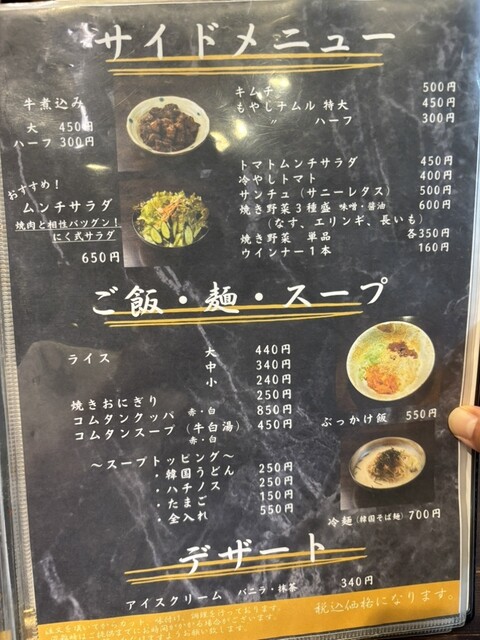 サイドメニュー
牛煮込み
大 450円
ハーフ 300円
おすすめ!
ムンチサラダ
焼肉と相性バツグン!
にく式サラダ
650円
キムチ 500円
もやしナムル 特大 450円
〃 ハーフ 300円
トマトムンチサラダ 450円
冷やしトマト 400円
サンチュ (サニーレタス) 500円
焼き野菜3種盛 味噌・醤油 600円
(なす、エリンギ、長いも)
焼き野菜 単品 各350円
ウインナー1本 160円
ご飯・麺・スープ
ライス 大 440円
中 340円
小 240円
焼きおにぎり 250円
コムタンクッパ 赤・白 850円
コムタンスープ (牛白湯) 450円
赤・白
~スープトッピング~
・韓国うどん 250円
・ハチノス 250円
・たまご 150円
・全入れ 550円
ぶっかけ飯 550円
冷麺(韓国そば麺) 700円
デザート
アイスクリーム バニラ・抹茶 340円
税込価格になります。